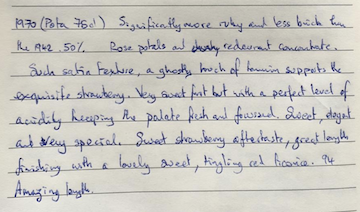 1970 (Pata 75cl) Significantly more ruby and less brick than
the 1942. 50%. Rose petals and redcurrant concentrate.
Such satin texture, a ghostly touch of tannin supports the
exquisite strawberry. Very sweet fruit but with a perfect level of
acidity keeping the palate fresh and focussed. Sweet, elegant
and very special. Sweet strawberry aftertaste, great length
finishing with a lovely sweet, tingling red licorice. 94
Amazing length.